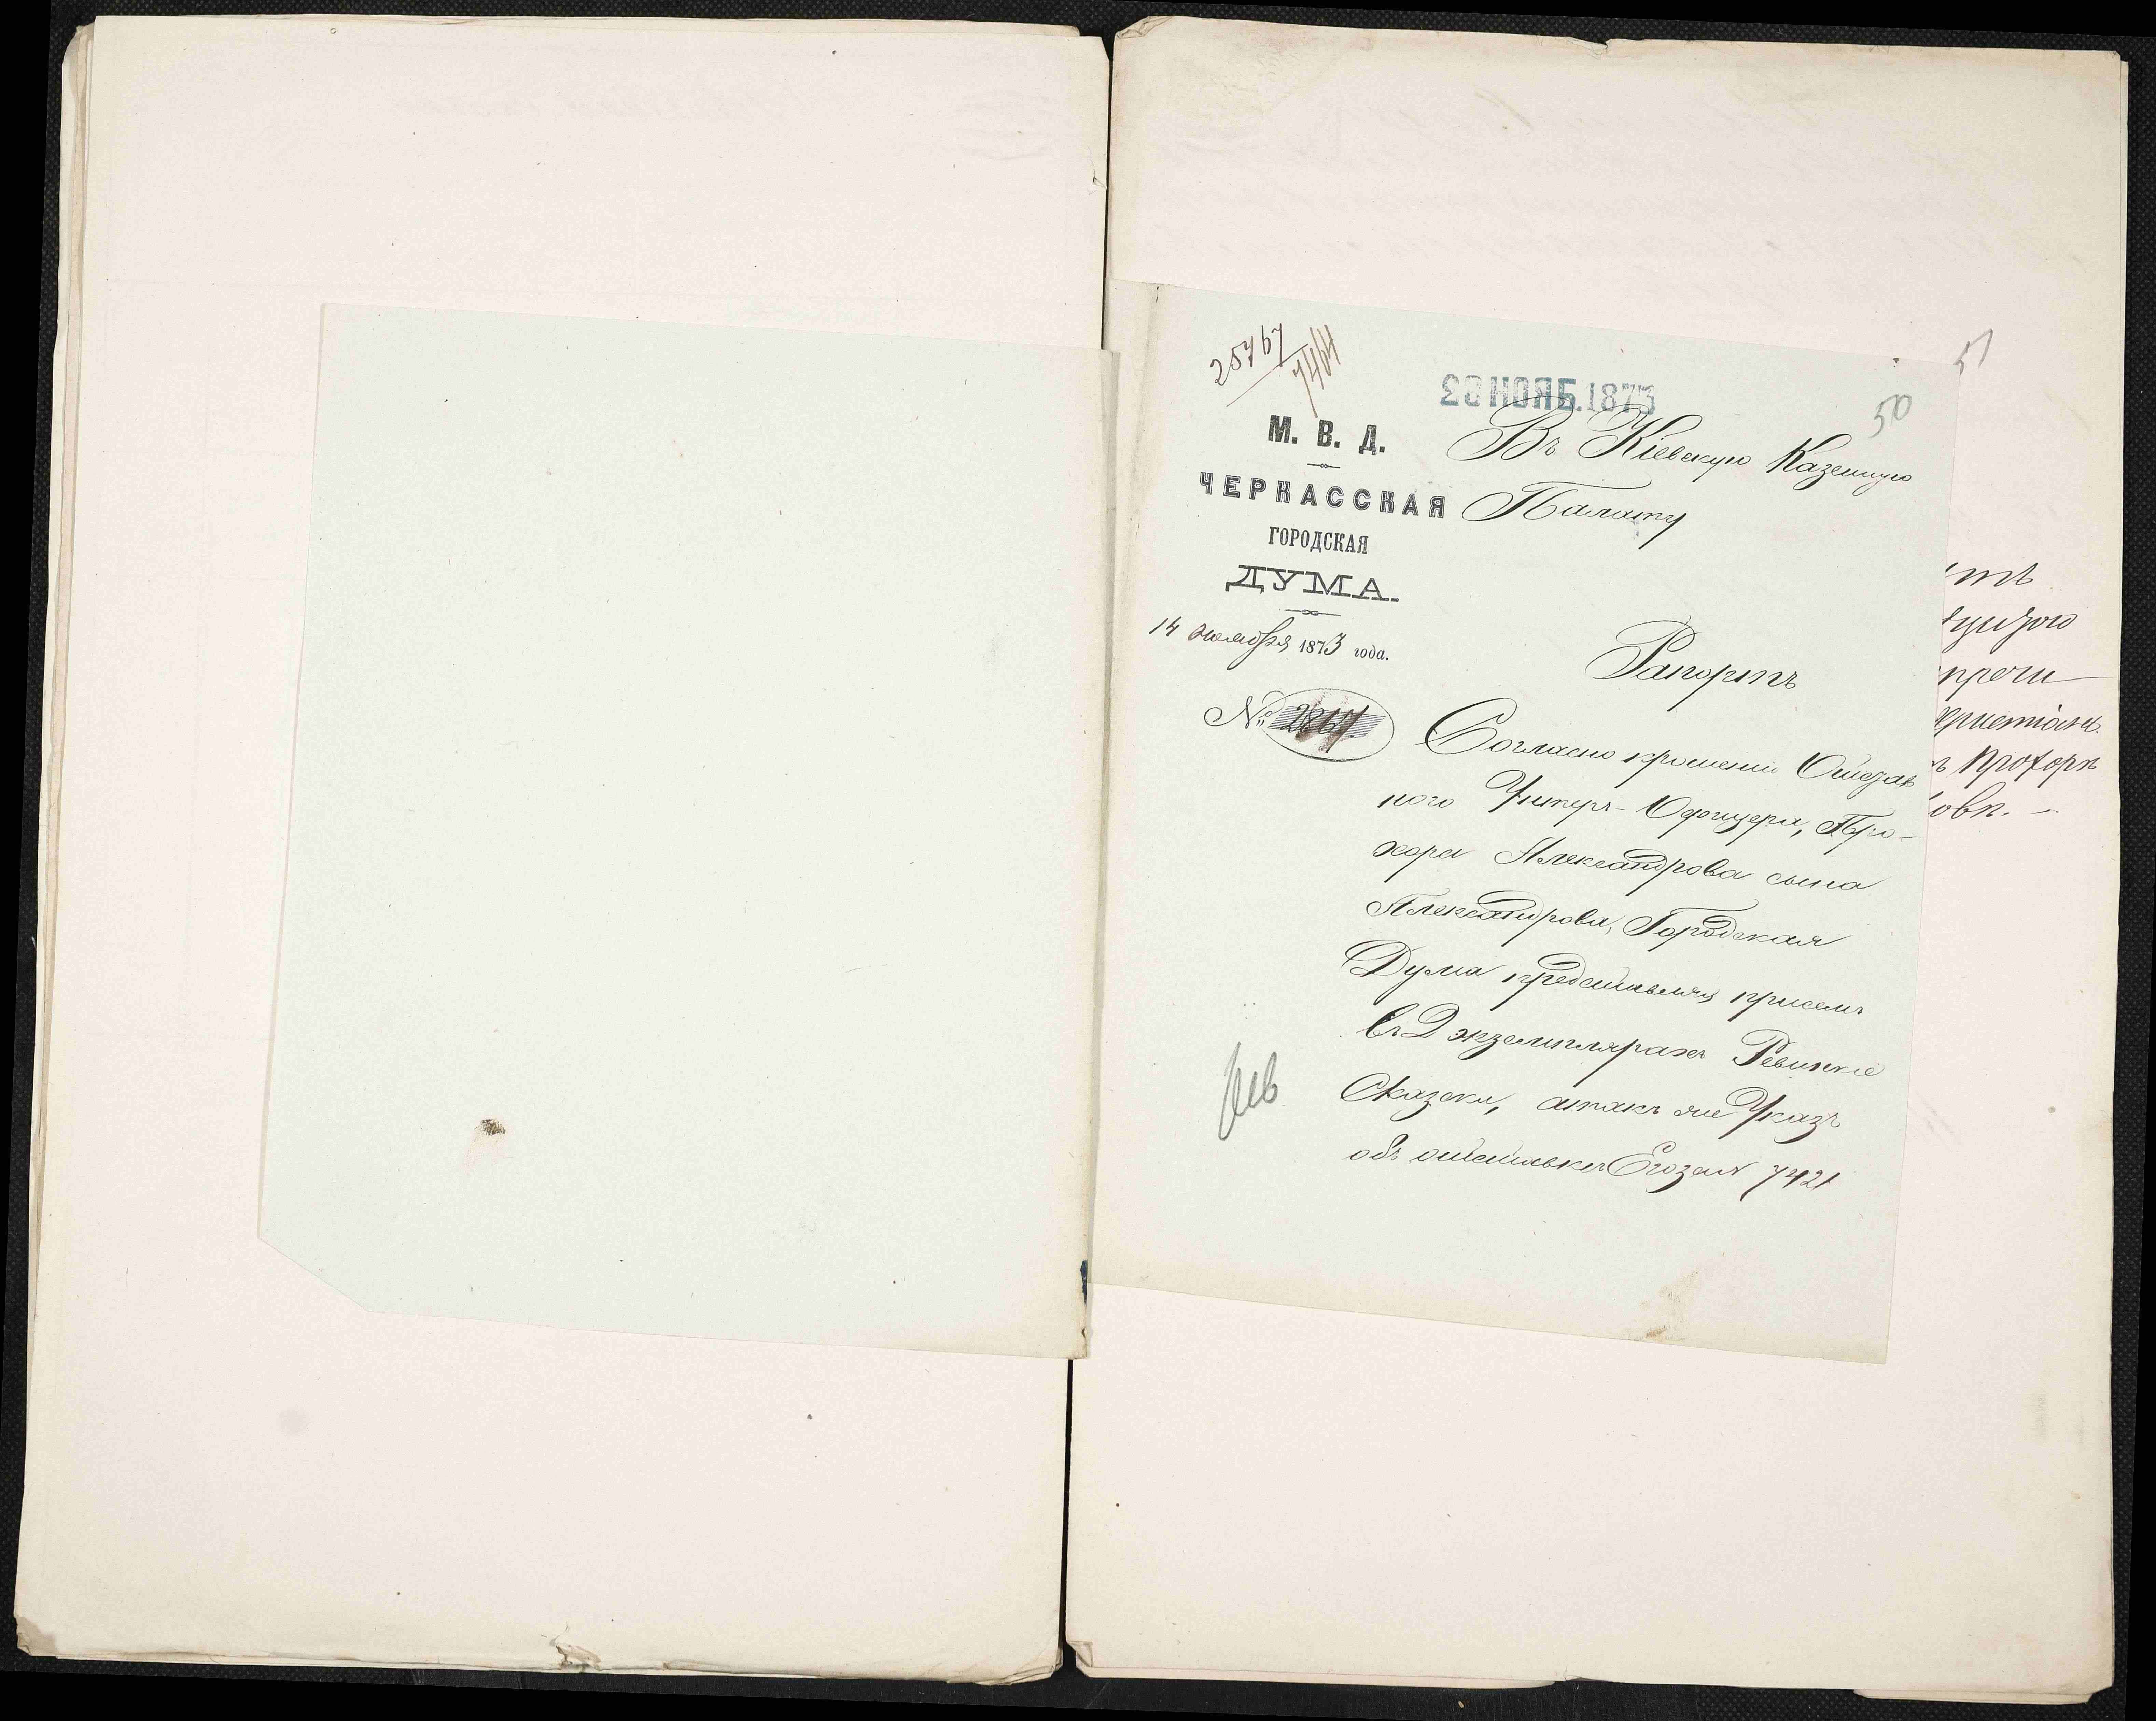 25767/7464
20 НОЯБ.1873
51
50
М. В. Д.
ЧЕРКАССКАЯ
ГОРОДСКАЯ
ДУМА.
14 ноября 1873 года.
№
Въ Кіевскую Казенную
Палату
Рапортъ
Согласно прошенію Отстав
ного Унтеръ-Офицера, Про-
хора Александрова сына
Александрова, Городская
Дума представляя присемъ
въ 2 экземплярахъ Ревизкіе
Сказски, атакъ же Указъ
объ отставкѣ Его за № 7421
прочи
христіанъ
Прохоръ
овъ. -